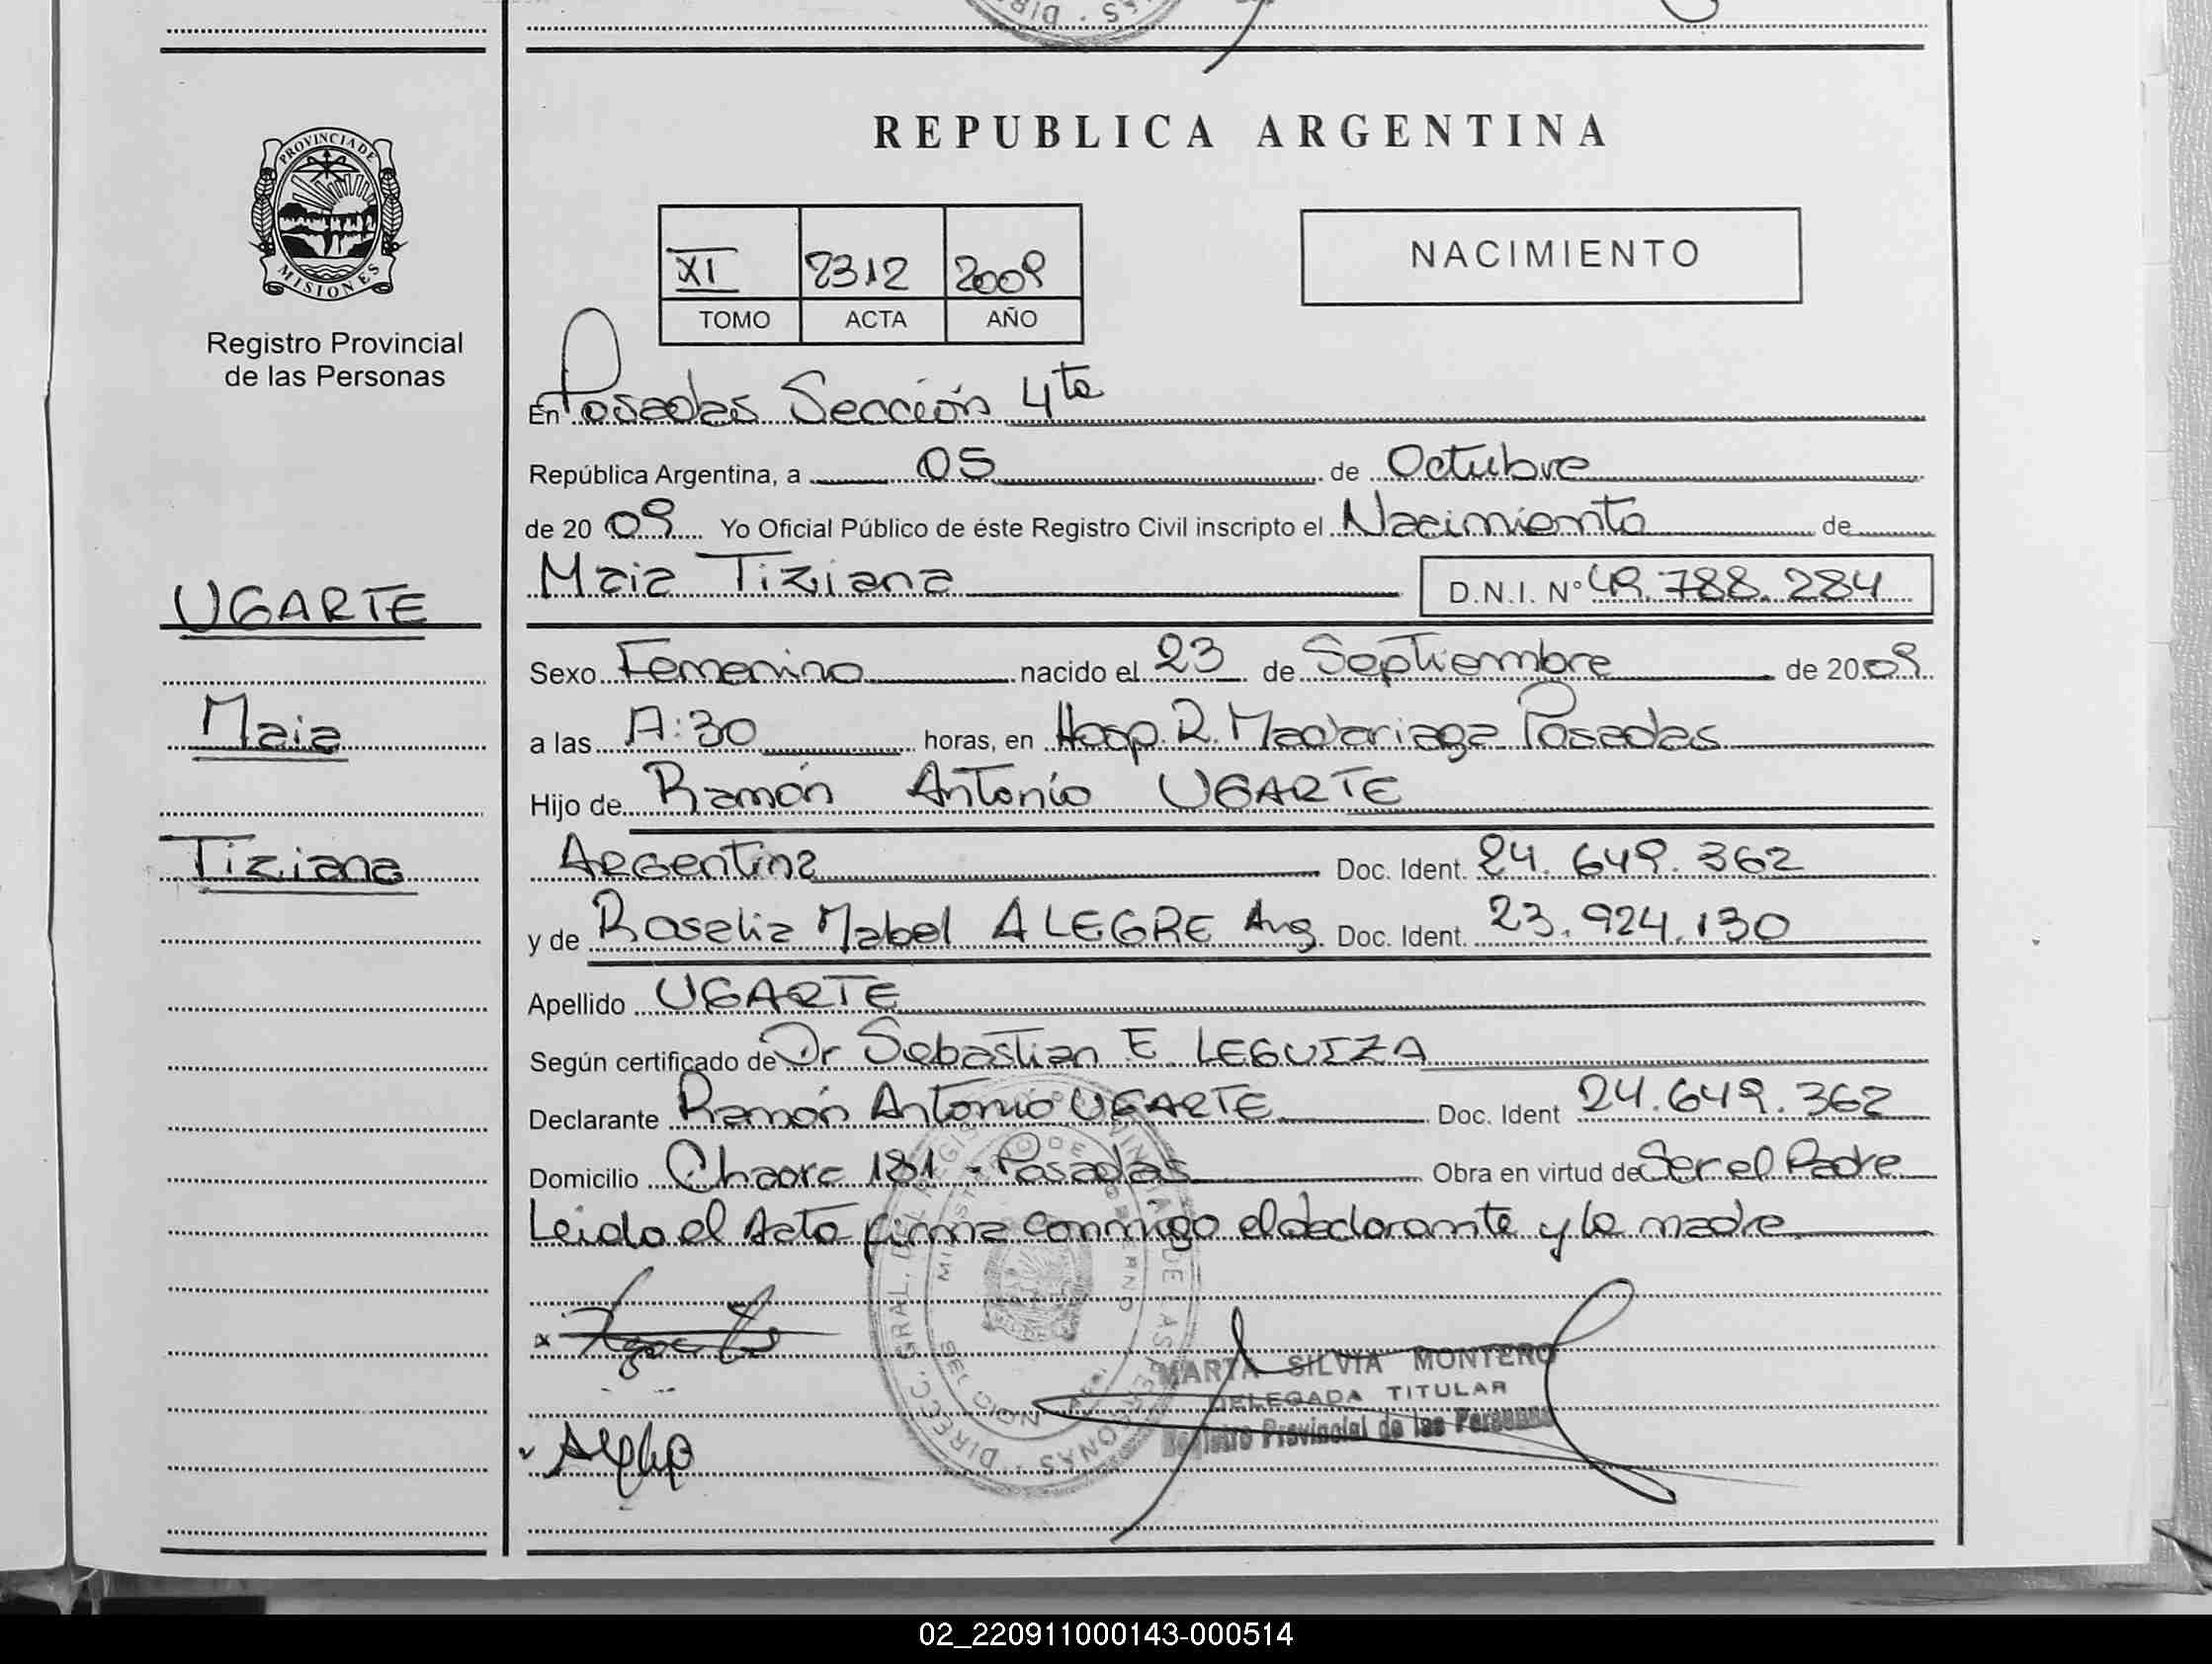 REPUBLICA ARGENTINA
PROVINCIA DE
MISIONES
Registro Provincial
de las Personas
XI 2312 2009
TOMO ACTA AÑO
NACIMIENTO
En Posadas Sección 4ta
República Argentina, a 05 de Octubre
de 20 09 Yo Oficial Público de éste Registro Civil inscripto el Nacimiento de
Maia Tiziana D.N.I. Nº 49.788.284
UGARTE
Maia
Tiziana
Sexo Femenino nacido el 23 de Septiembre de 2009
a las :30 horas, en Hosp. R. Madariaga Posadas
Hijo de Ramón Antonio UGARTE
Argentina Doc. Ident. 24.649.362
y de Rosalia Mabel ALEGRE Arg. Doc. Ident. 23.924.130
Apellido UGARTE
Según certificado de Dr Sebastian E. LEGUIZA
Declarante Ramón Antonio UGARTE Doc. Ident 24.649.362
Domicilio 181 - Posadas Obra en virtud de Ser el Padre
Leido el Acta firma conmigo el declarante y la madre
MARTA SILVIA MONTERO
DELEGADA TITULAR
Registro Provincial de las Personas
02_220911000143-000514